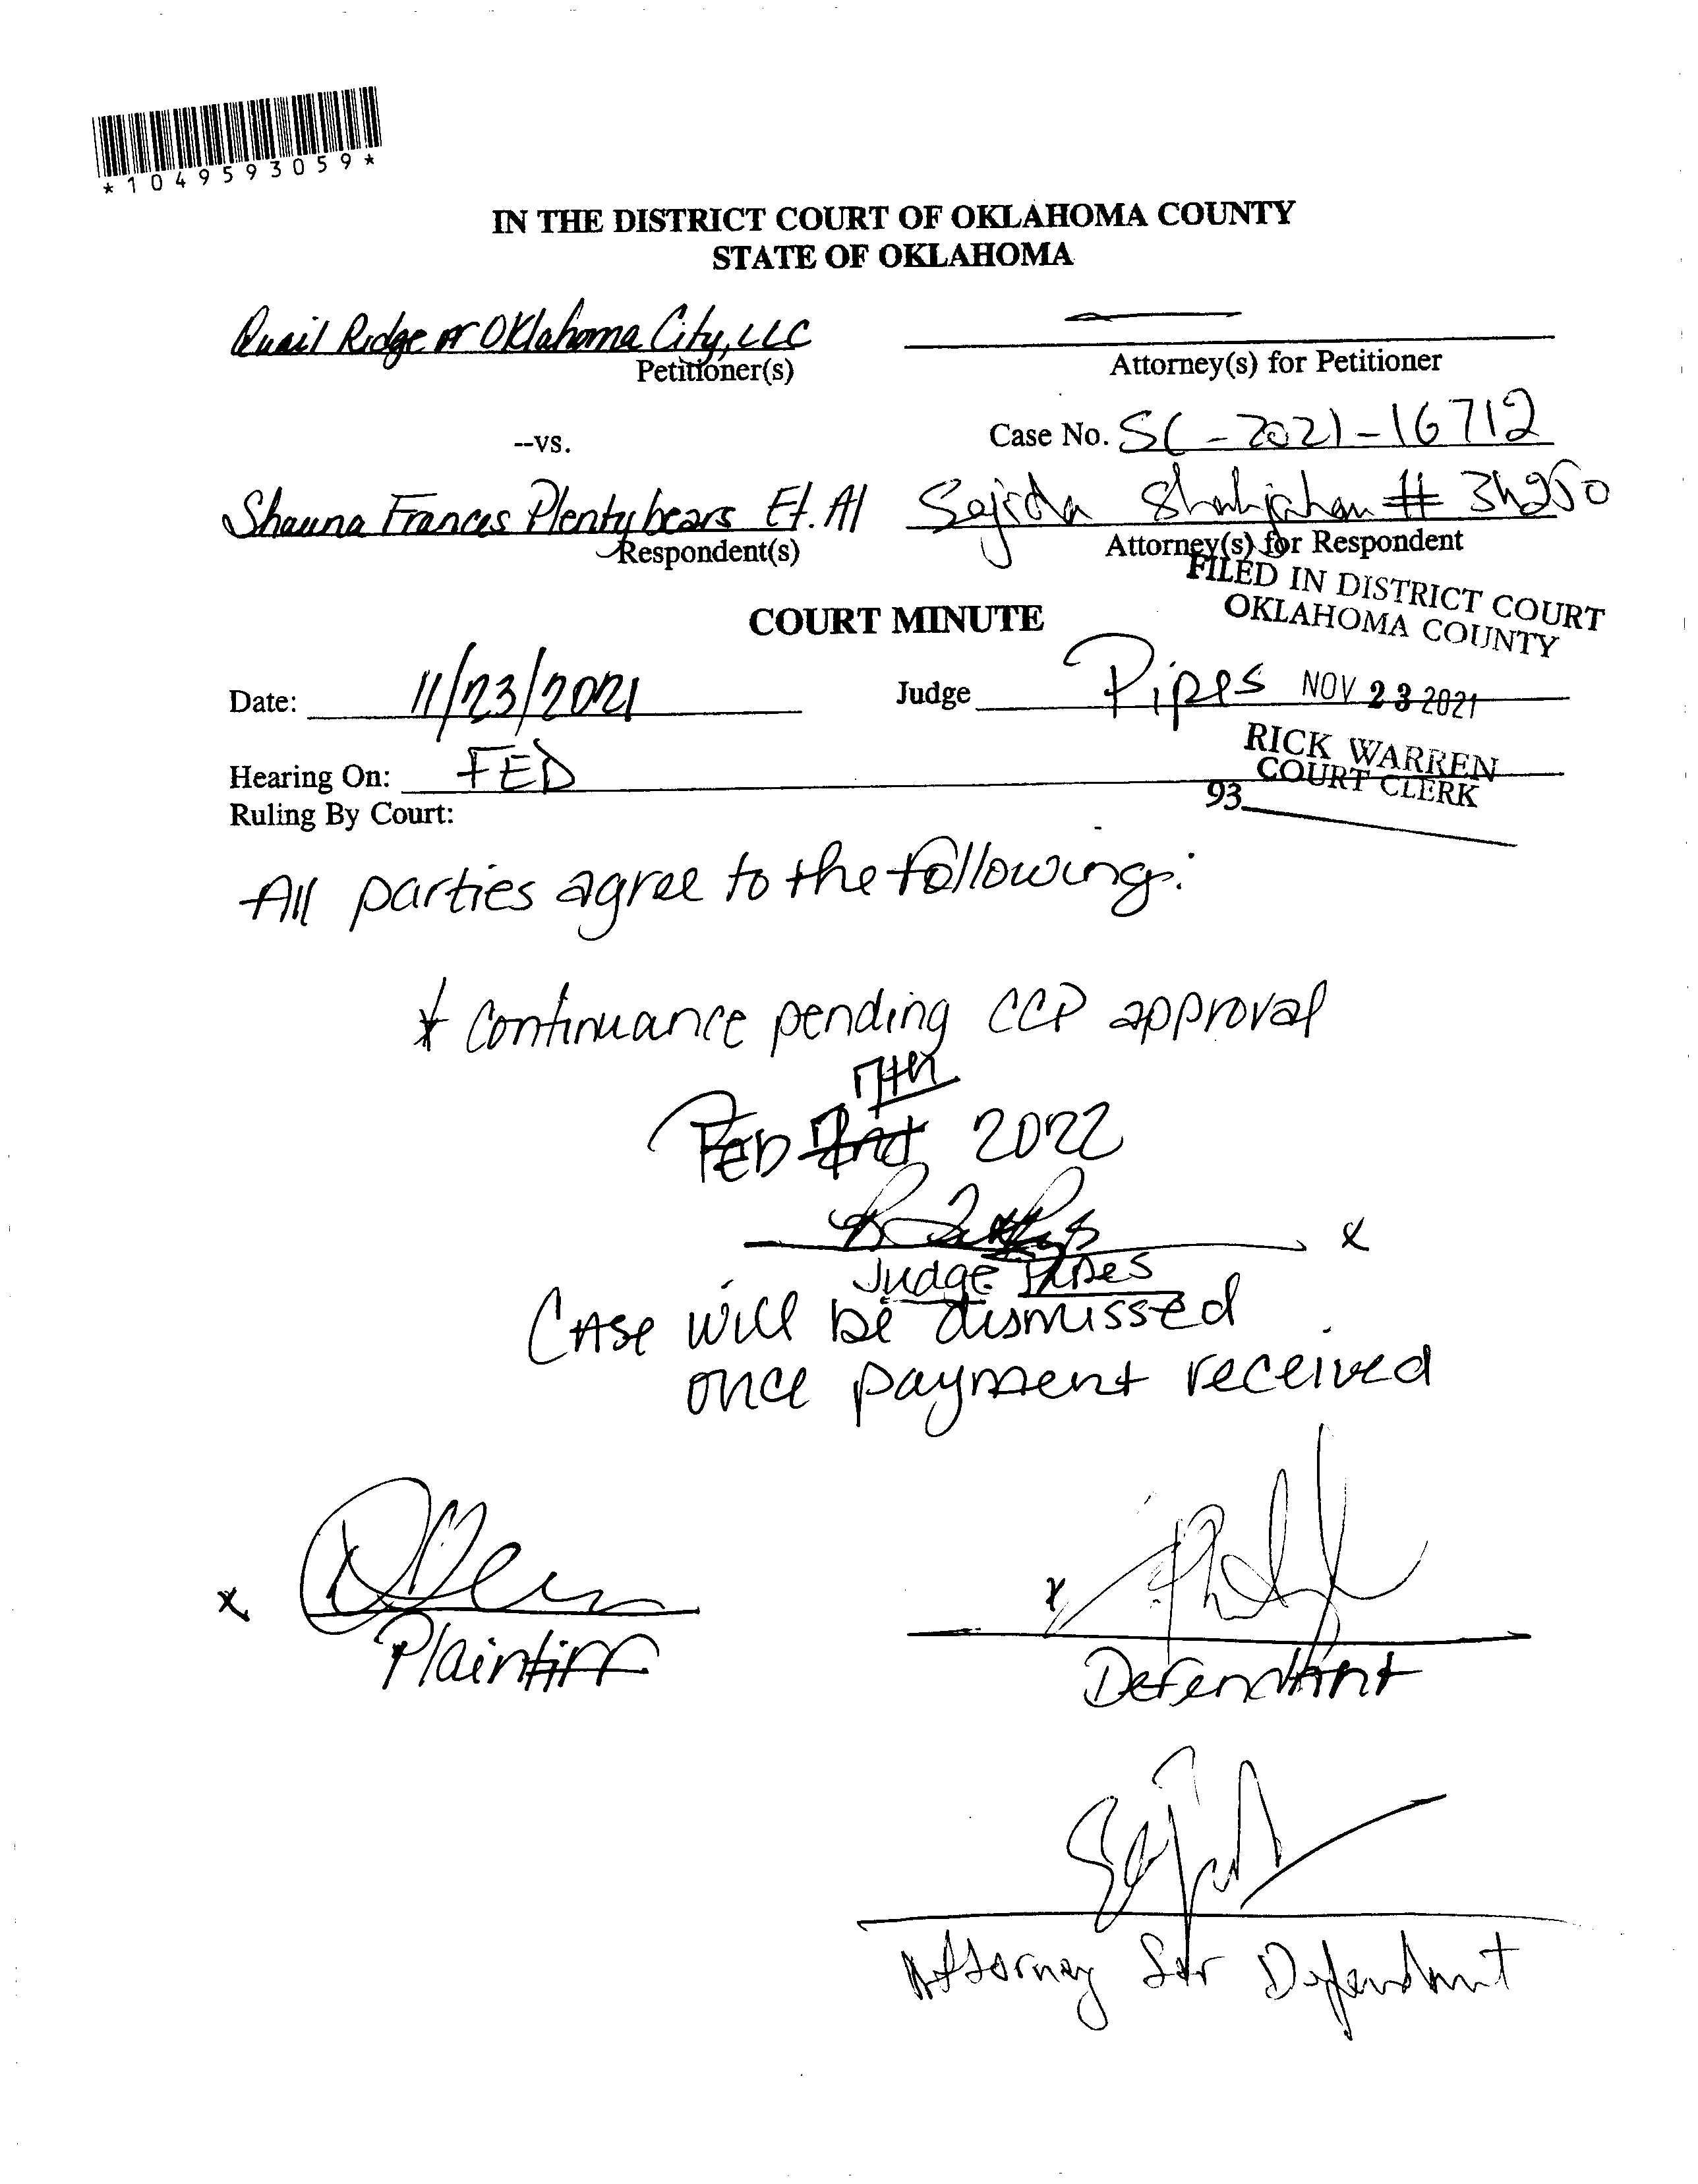 *1049593059*
IN THE DISTRICT COURT OF OKLAHOMA COUNTY
STATE OF OKLAHOMA
Quail Ridge Oklahoma City, LLC
Petitioner(s)
Attorney(s) for Petitioner
--vs.
Case No. SC-2021-16712
Shauna Frances Plentybears Et. Al
Respondent(s)
Sajida Shahjahan # 34250
Attorney(s) for Respondent
FILED IN DISTRICT COURT
OKLAHOMA COUNTY
COURT MINUTE
Date: 11/23/2021
Judge Pipes
NOV 23 2021
Hearing On: FED
RICK WARREN
COURT CLERK
93
Ruling By Court:
All parties agree to the following:
* Continuance pending CCP approval
7th
Feb 2nd 2022
x
Judge Pipes
Case will be dismissed
once payment received
x
Plaintiff
x
Defendant
Attorney for Defendant